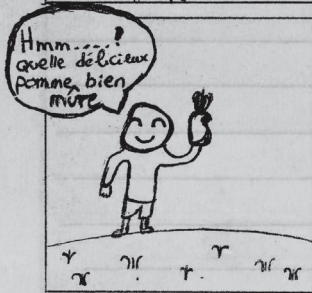 Hmm.....?
quelle délicieux
pomme bien
mûre